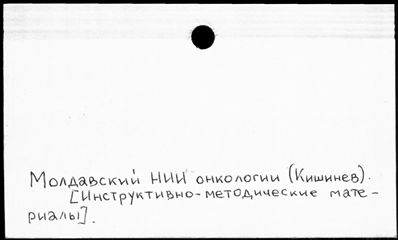 Молдавский НИИ онкологии (Кишинев).
[Инструктивно-методические мате-
риалы].